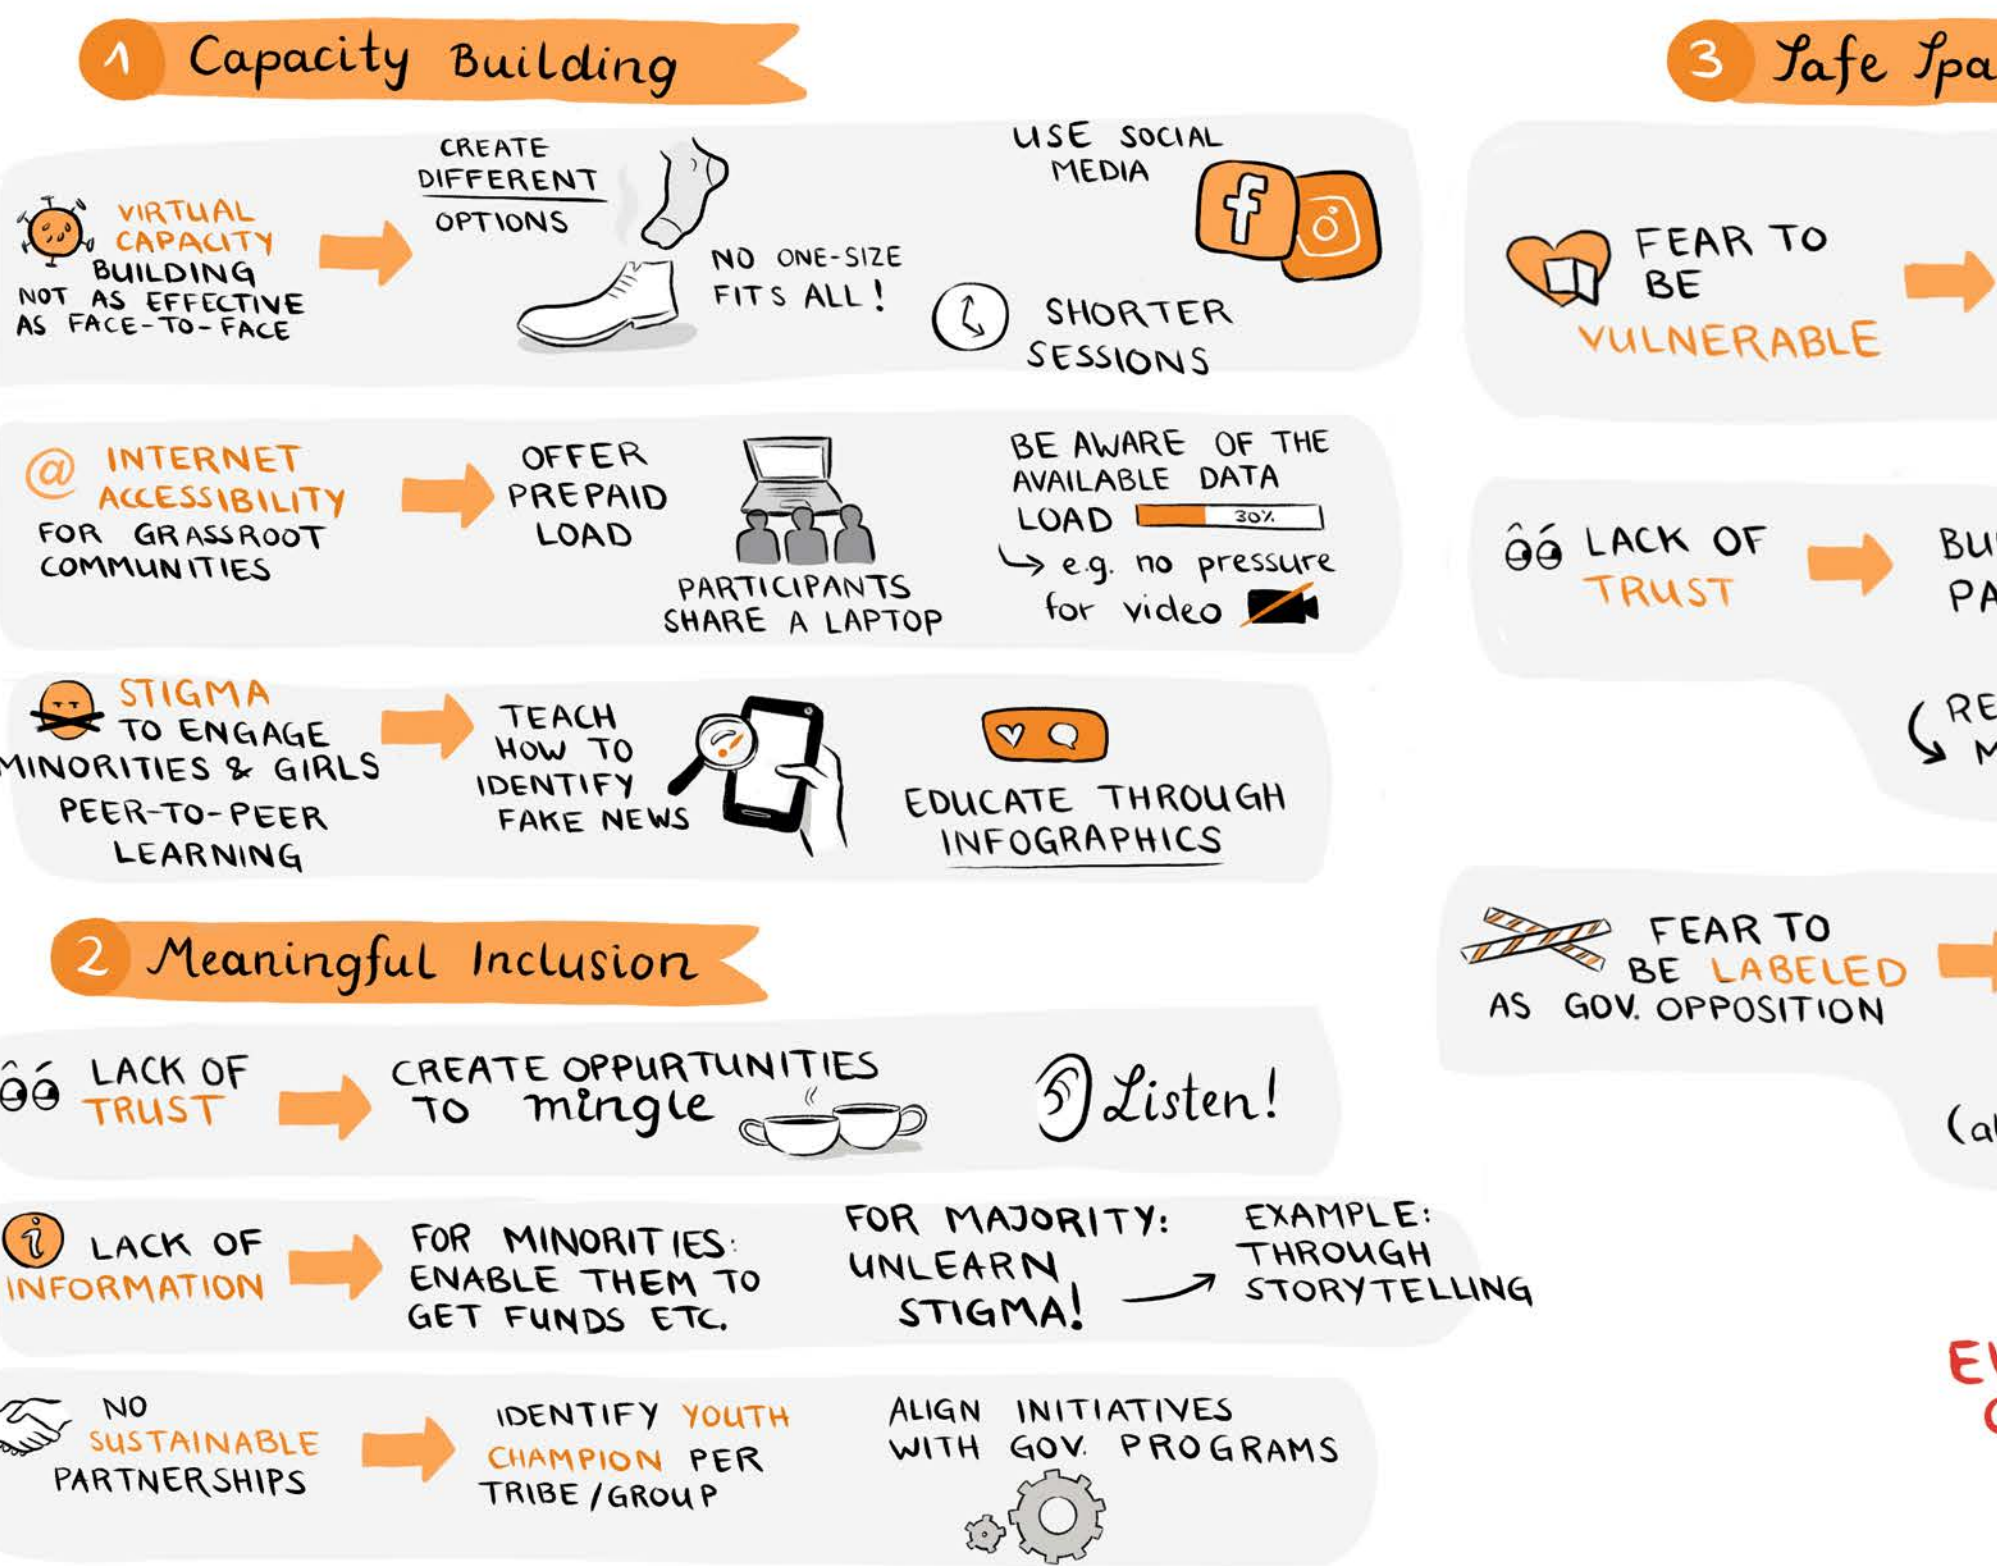 1 Capacity Building
VIRTUAL
CAPACITY
BUILDING
NOT AS EFFECTIVE
AS FACE-TO-FACE
CREATE
DIFFERENT
OPTIONS
NO ONE-SIZE
FITS ALL!
USE SOCIAL
MEDIA
f
SHORTER
SESSIONS
@ INTERNET
ACCESSIBILITY
FOR GRASSROOT
COMMUNITIES
OFFER
PREPAID
LOAD
PARTICIPANTS
SHARE A LAPTOP
BE AWARE OF THE
AVAILABLE DATA
LOAD 30%
e.g. no pressure
for video
STIGMA
TO ENGAGE
MINORITIES & GIRLS
PEER-TO-PEER
LEARNING
TEACH
HOW TO
IDENTIFY
FAKE NEWS
EDUCATE THROUGH
INFOGRAPHICS
2 Meaningful Inclusion
LACK OF
TRUST
CREATE OPPURTUNITIES
TO mingle
Listen!
i LACK OF
INFORMATION
FOR MINORITIES:
ENABLE THEM TO
GET FUNDS ETC.
FOR MAJORITY:
UNLEARN
STIGMA!
EXAMPLE:
THROUGH
STORYTELLING
NO
SUSTAINABLE
PARTNERSHIPS
IDENTIFY YOUTH
CHAMPION PER
TRIBE/GROUP
ALIGN INITIATIVES
WITH GOV. PROGRAMS
3 Safe Spa
FEAR TO
BE
VULNERABLE
LACK OF
TRUST
BU
PA
RE
FEAR TO
BE LABELED
AS GOV. OPPOSITION